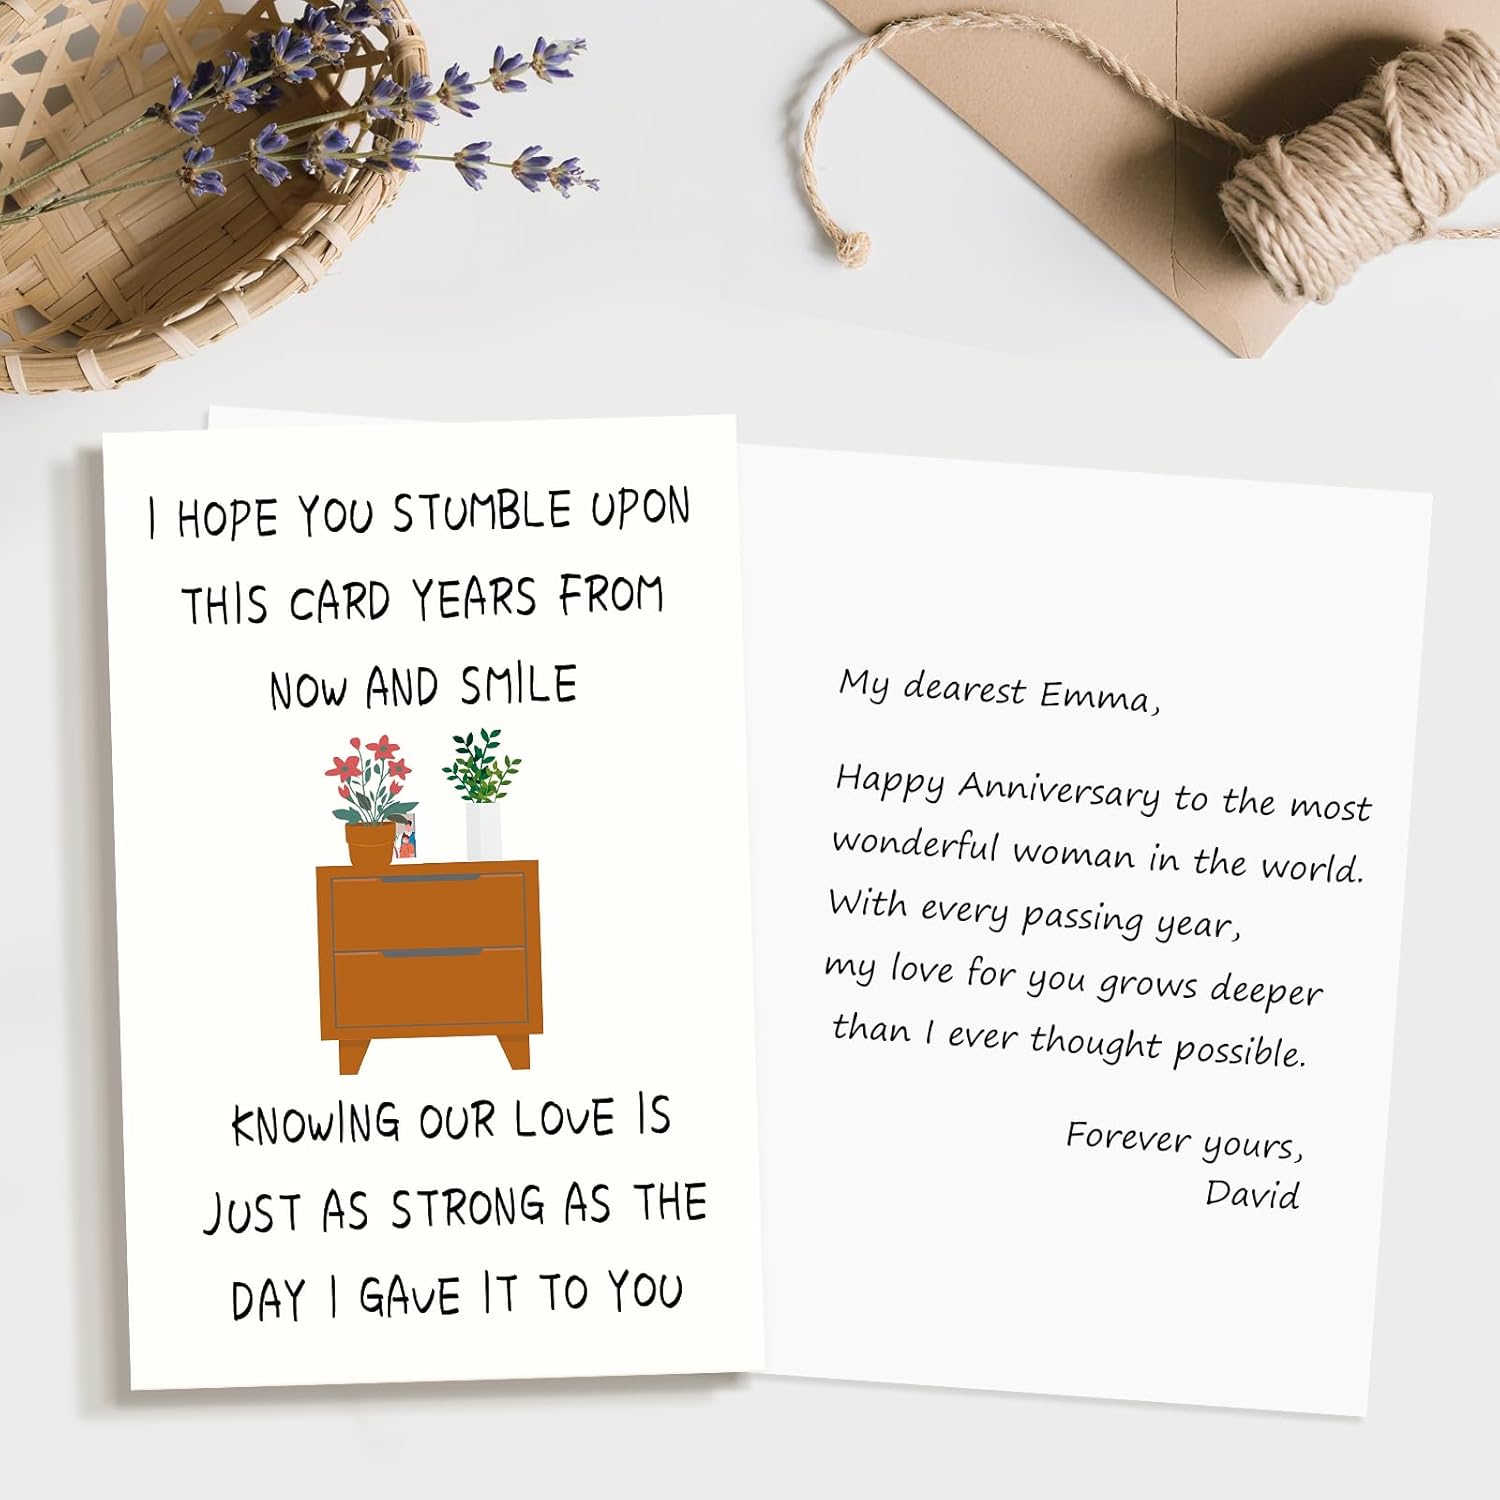 I HOPE YOU STUMBLE UPON
THIS CARD YEARS FROM
NOW AND SMILE
KNOWING OUR LOVE IS
JUST AS STRONG AS THE
DAY I GAVE IT TO YOU
My dearest Emma,
Happy Anniversary to the most
wonderful woman in the world.
With every passing year,
my love for you grows deeper
than I ever thought possible.
Forever yours,
David